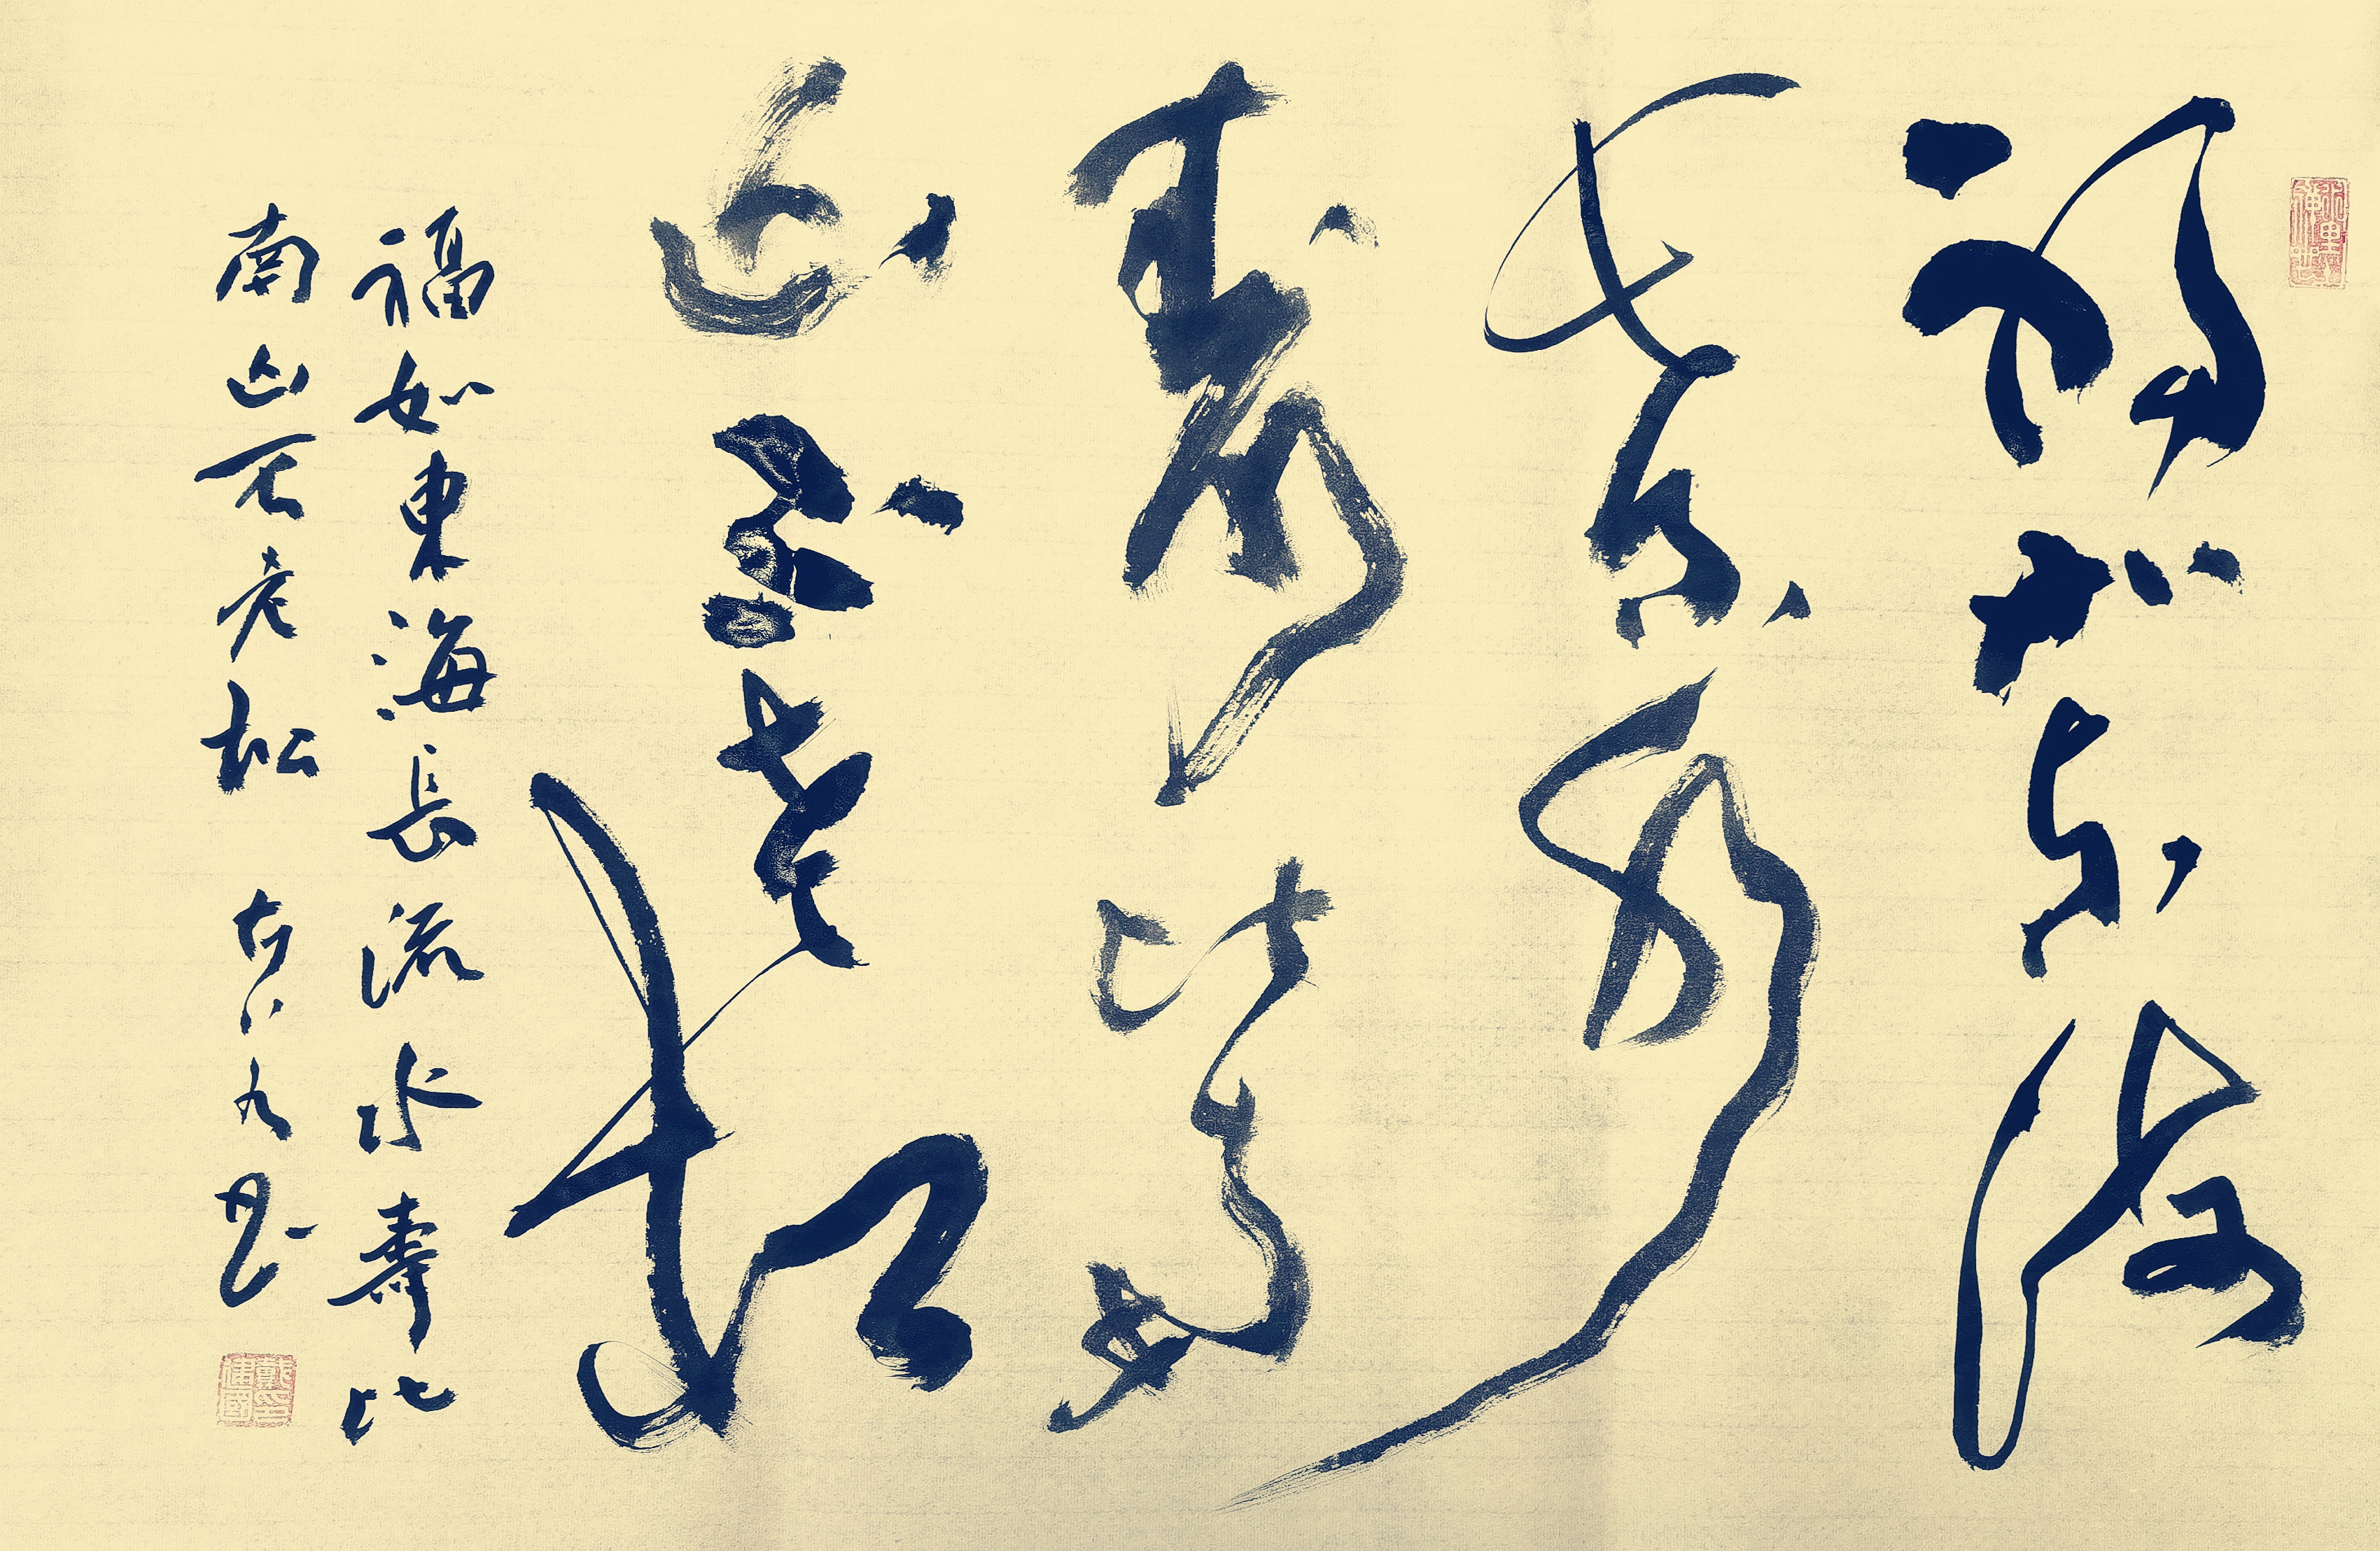 福如東海
長流水
壽比南
山不老松
福如東海長流水壽比
南山不老松
戴印建國